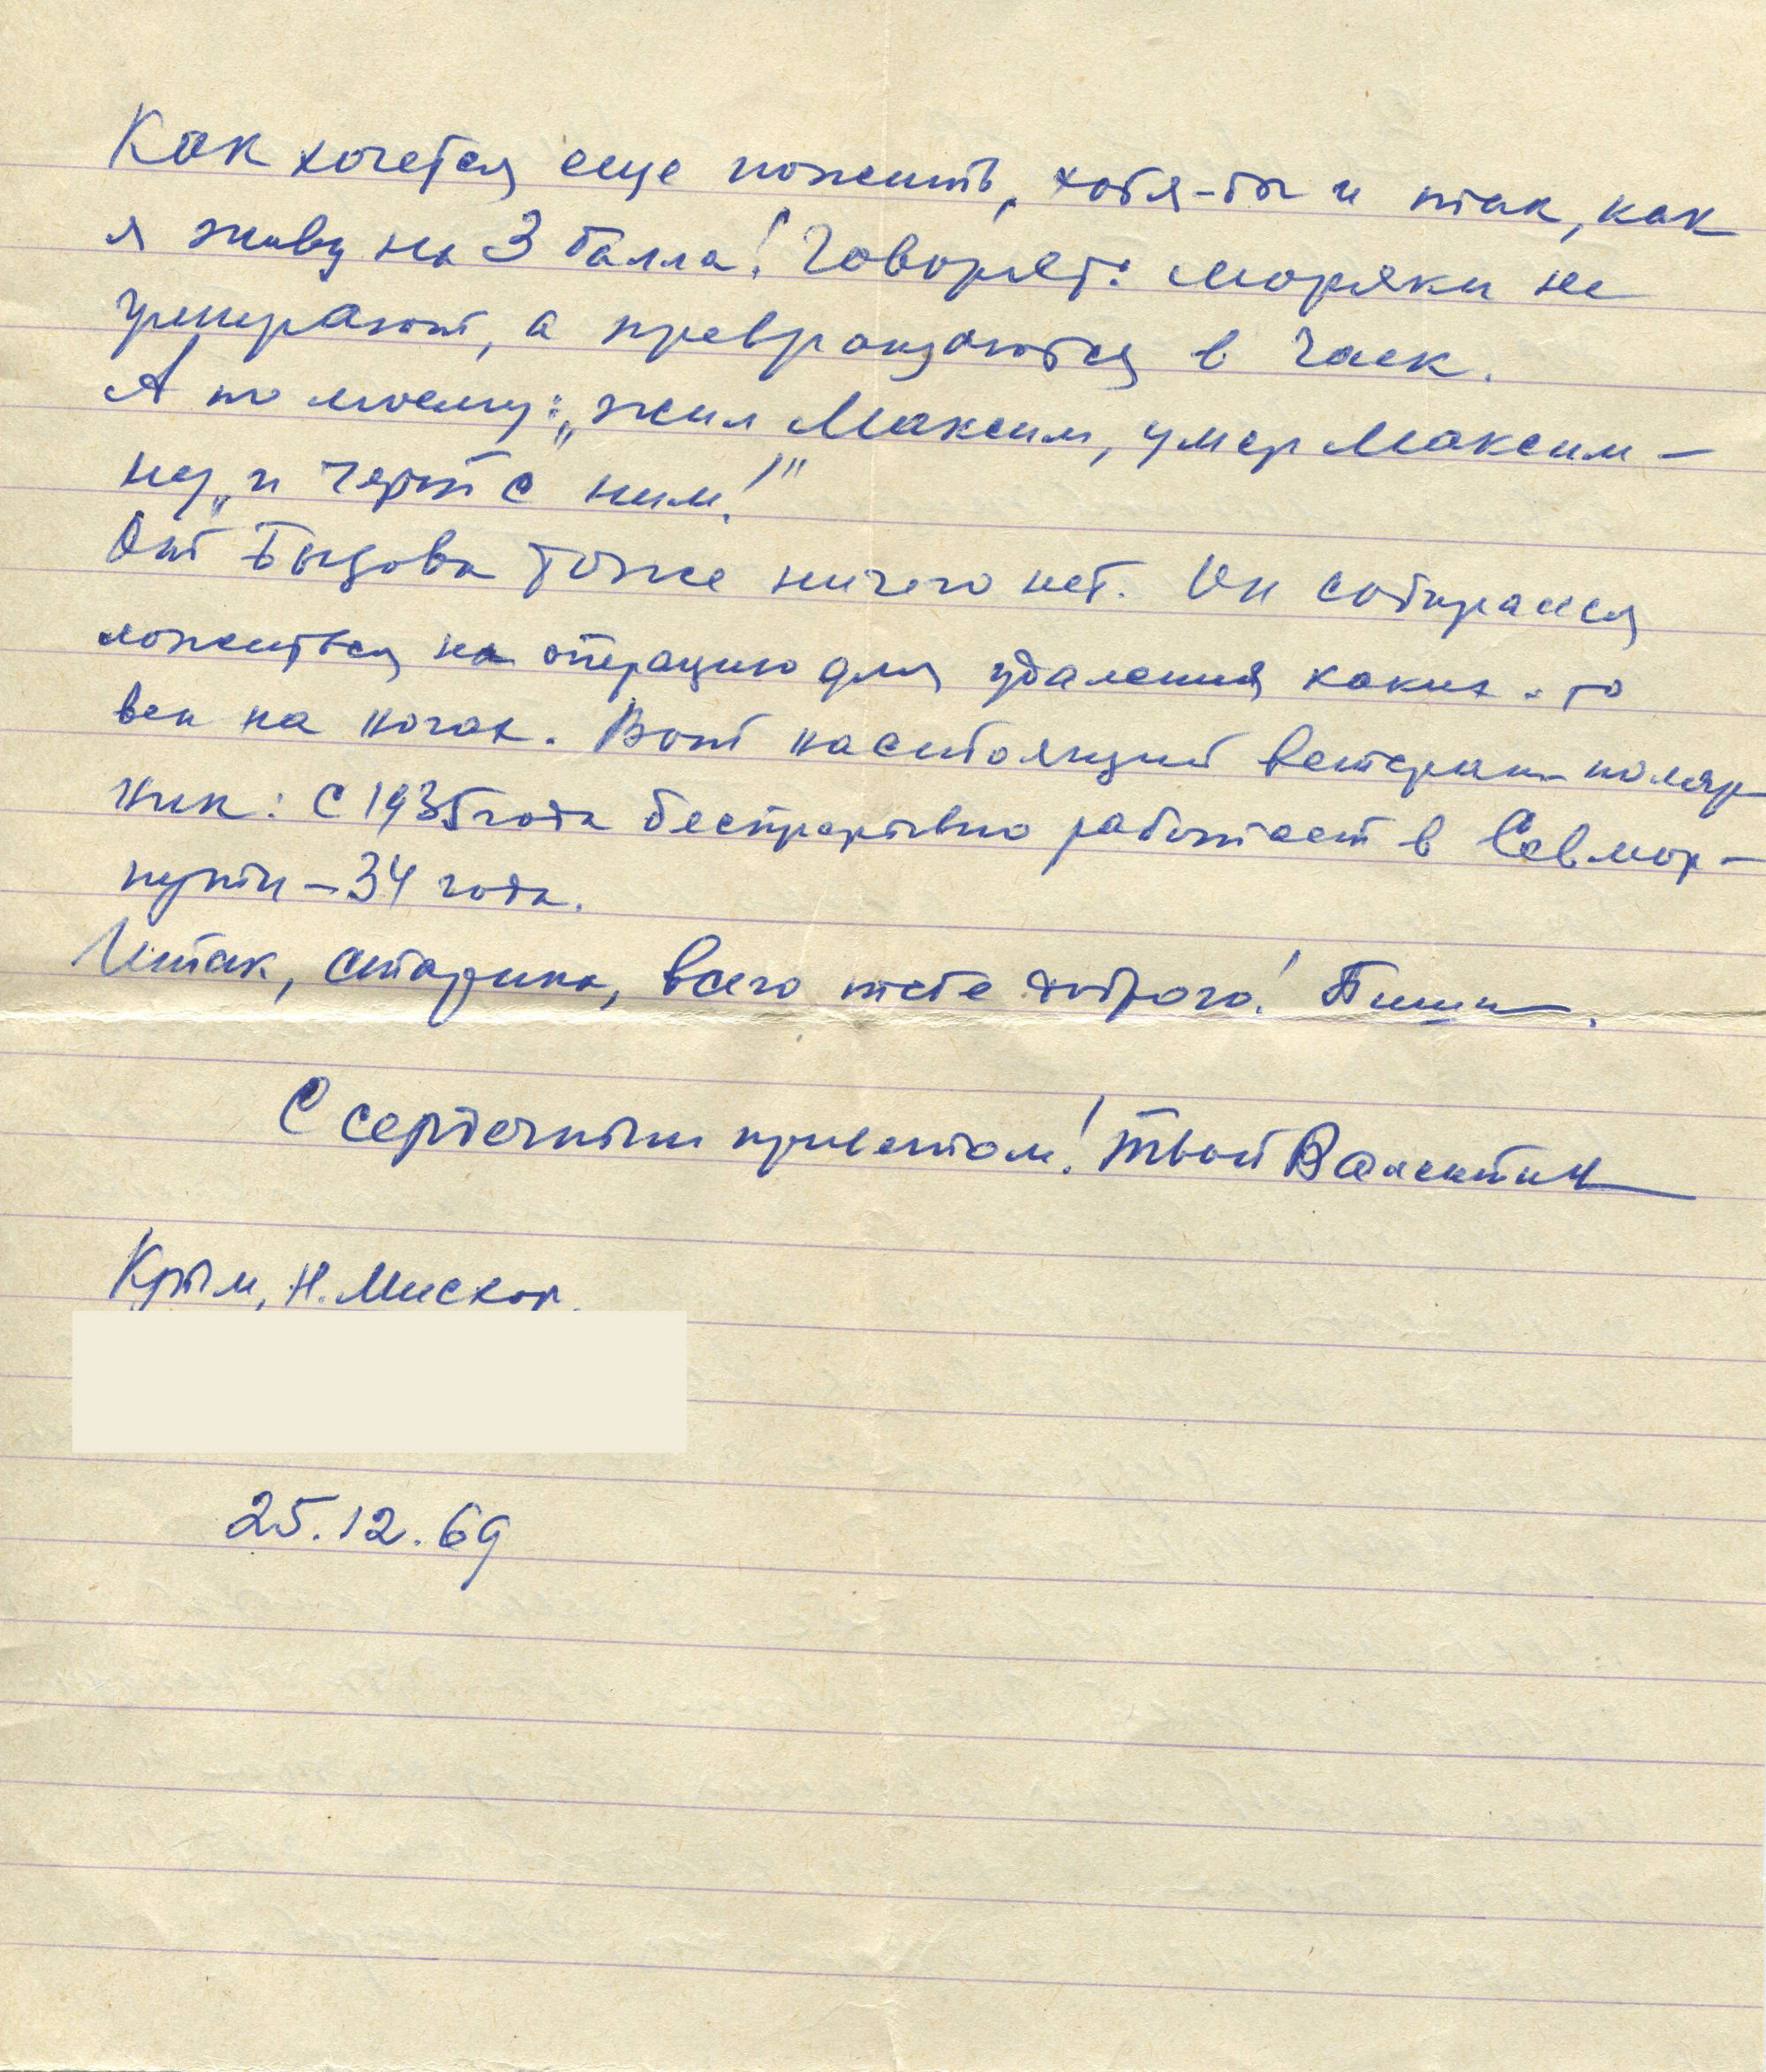 Как хочется еще пожить, хотя-бы и так, как
я живу на 3 балла! Говорят: моряки не
умирают, а превращаются в чаек.
А по моему: „жил Максим, умер Максим —
ну, и черт с ним!"
От тоже ничего нет. Он собирался
ложиться на операцию для удаления каких-то
вен на ногах. Вот настоящий ветеран-поляр-
ник: с 1935 года беспрерывно работает в Севмор-
пути — 34 года.
Итак, старина, всего тебе доброго! Пиши.
С сердечным приветом! Твой Валентин
Крым, Н. Мисхор.
25.12.69